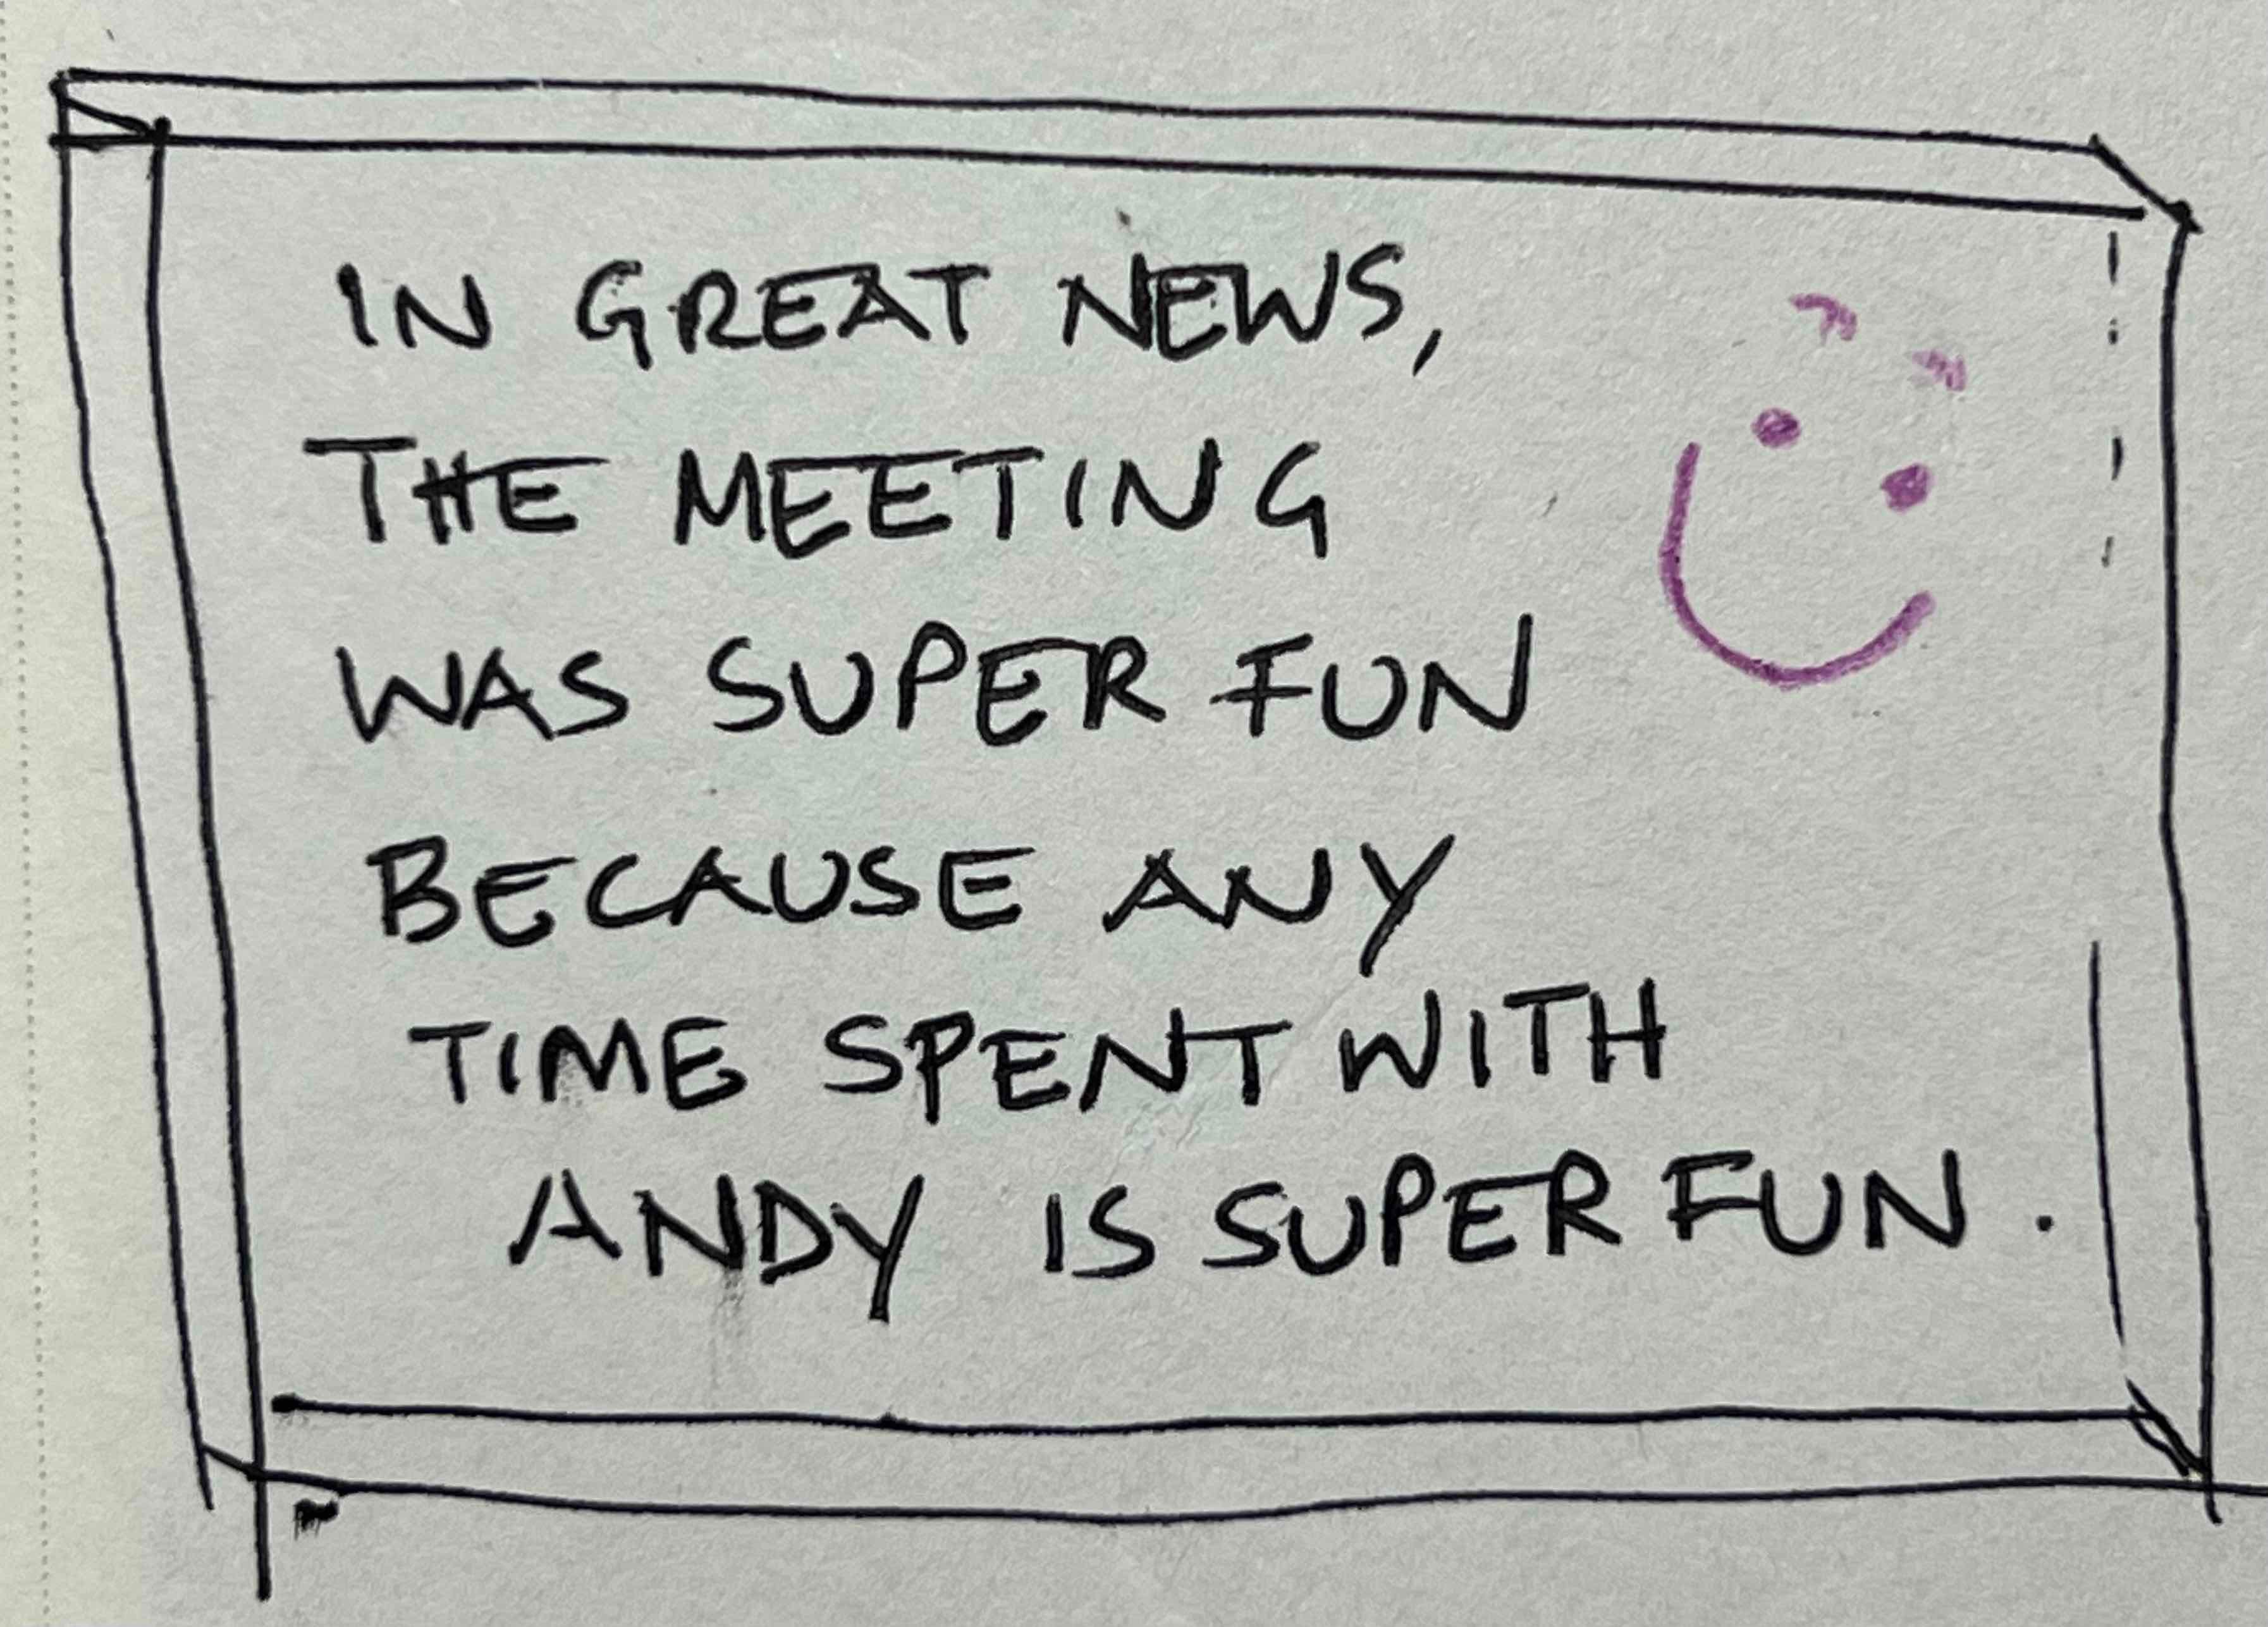 IN GREAT NEWS,
THE MEETING
WAS SUPER FUN
BECAUSE ANY
TIME SPENT WITH
ANDY IS SUPER FUN.